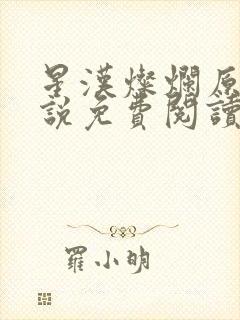 星漢燦爛原
説免費閱讀
羅小明